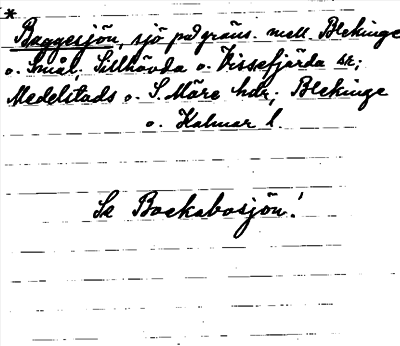 *
Baggesjön, sjö på gräns. mell. Blekinge
o. Smål.; Sillhövda o. Vissefjärda sr;
Medelstads o. S. Möre hdr; Blekinge
o. Kalmar l.
Se Bockabosjön!